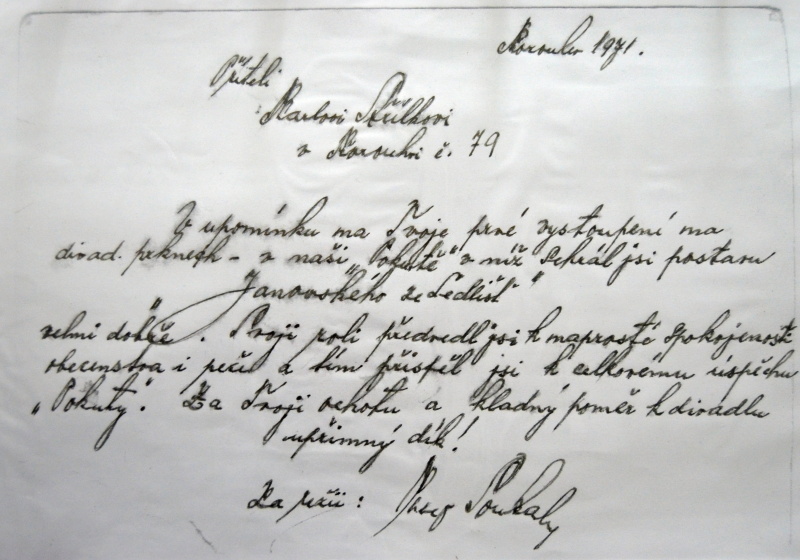 Korouhev 1971.
Příteli
Karlovi Střílkovi
v Korouhvi č. 79
V upomínku na Tvoje prvé vystoupení na
divad. prknech - v naší „Pokutě" v níž sehrál jsi postavu
„Janovského ze Sedlišť"
velmi dobře. Svoji roli předvedl jsi k naprosté spokojenosti
obecenstva i režie a tím přispěl jsi k celkovému úspěchu
„Pokuty". Za Tvoji ochotu a kladný poměr k divadlu
upřímný dík!
Za režii: Josef